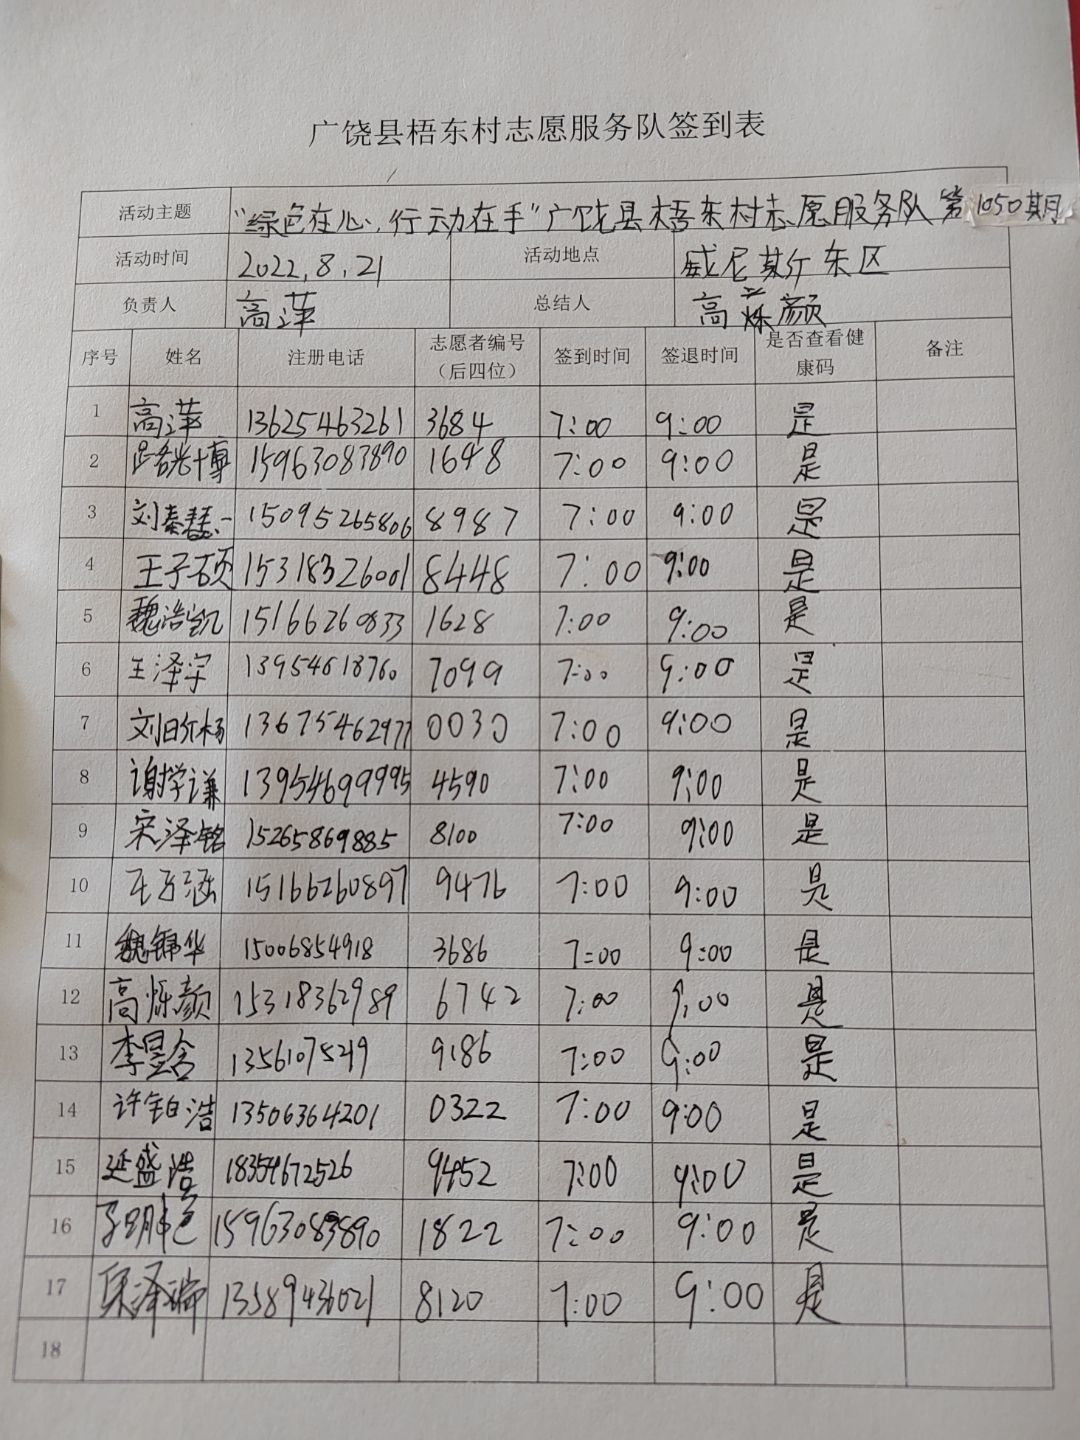 广饶县梧东村志愿服务队签到表
活动主题 "绿色在心,行动在手"广饶县梧东村志愿服务队第1050期
活动时间 2022.8.21 活动地点 威尼斯东区
负责人 高萍 总结人 高烁颜
序号 姓名 注册电话 志愿者编号(后四位) 签到时间 签退时间 是否查看健康码 备注
1 高萍 13625463261 3684 7:00 9:00 是
2 15963083890 1648 7:00 9:00 是
3 刘秦慧一 15095265806 8987 7:00 9:00 是
4 王子硕 15318326001 8448 7:00 9:00 是
5 魏浩凯 15166260833 1628 7:00 9:00 是
6 王泽宇 13954618760 7099 7:00 9:00 是
7 13675462977 0030 7:00 9:00 是
8 谢学谦 13954699995 4590 7:00 9:00 是
9 宋泽铭 15265869885 8100 7:00 9:00 是
10 15166260897 9476 7:00 9:00 是
11 魏锦华 15006854918 3686 7:00 9:00 是
12 高烁颜 15318362989 6742 7:00 9:00 是
13 李昱含 1356107529 9186 7:00 9:00 是
14 许铂浩 13506364201 0322 7:00 9:00 是
15 延盛浩 18354672526 9452 7:00 9:00 是
16 15963083890 1822 7:00 9:00 是
17 13589436021 8120 7:00 9:00 是
18